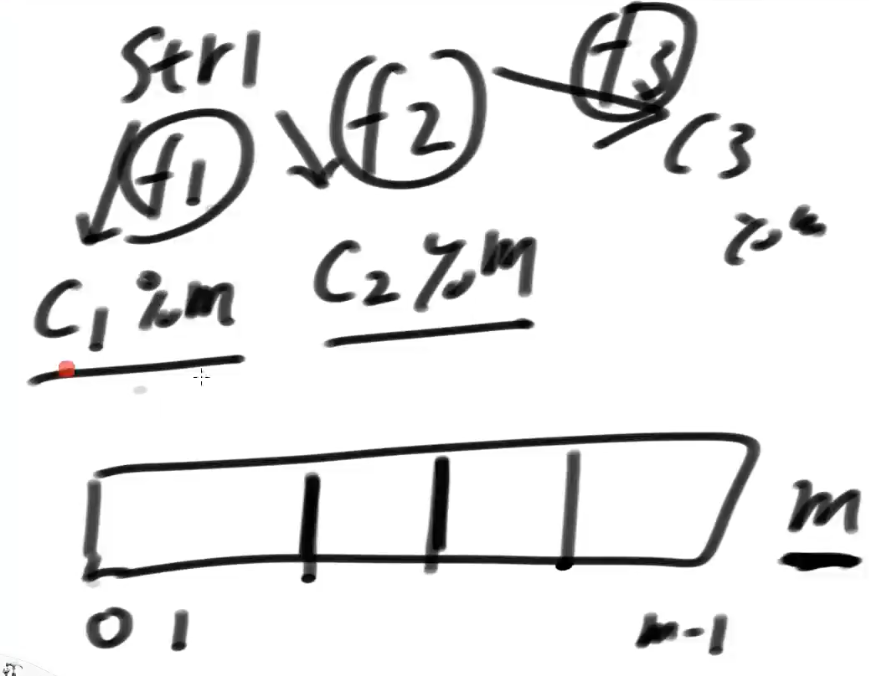 Str1
f1 f2 f3
C1 %m C2 %m C3
%m
m
0 1 m-1